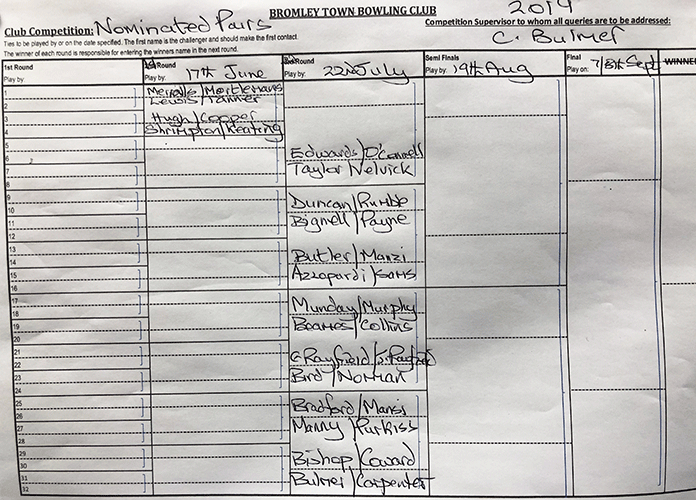 BROMLEY TOWN BOWLING CLUB
2019
Club Competition: Nominated Pairs
Competition Supervisor to whom all queries are to be addressed:
C. Bulmer
Ties to be played by or on the date specified. The first name is the challenger and should make the first contact.
The winner of each round is responsible for entering the winners name in the next round.
1st Round
Play by:
Round
Play by: 17th June
Round
Play by: 22nd July
Semi Finals
Play by: 19th Aug
Final
Play on: 7/8th Sept
WINNER
1
2
3
4
5
6
7
8
9
10
11
12
13
14
15
16
17
18
19
20
21
22
23
24
25
26
27
28
29
30
31
32
Merralls/Mortlemans
Lewis/Tanner
Hugh/Cooper
Shrimpton/Keating
Edwards/O'Connell
Taylor/Nelvick
Duncan/Rumble
Bignell/Payne
Butler/Manzi
Azzopardi/Sams
Munday/Murphy
Beames/Collins
C Rayfield/J. Rayfield
Bird/Norman
Bradford/Mansi
Manny/Purkiss
Bishop/Coward
Bulmer/Carpenter